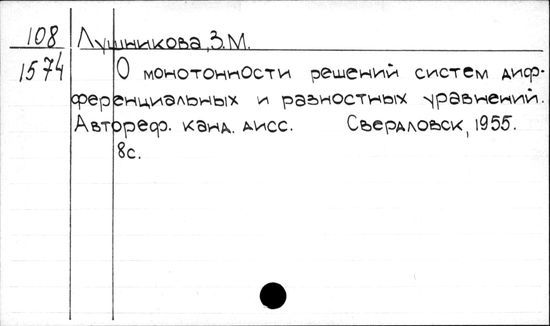 108 Лушникова, З.М.
1574 О монотонности решений систем диф-
ференциальных и разностных уравнений.
Автореф. канд. дисс. Свердловск, 1955.
8с.